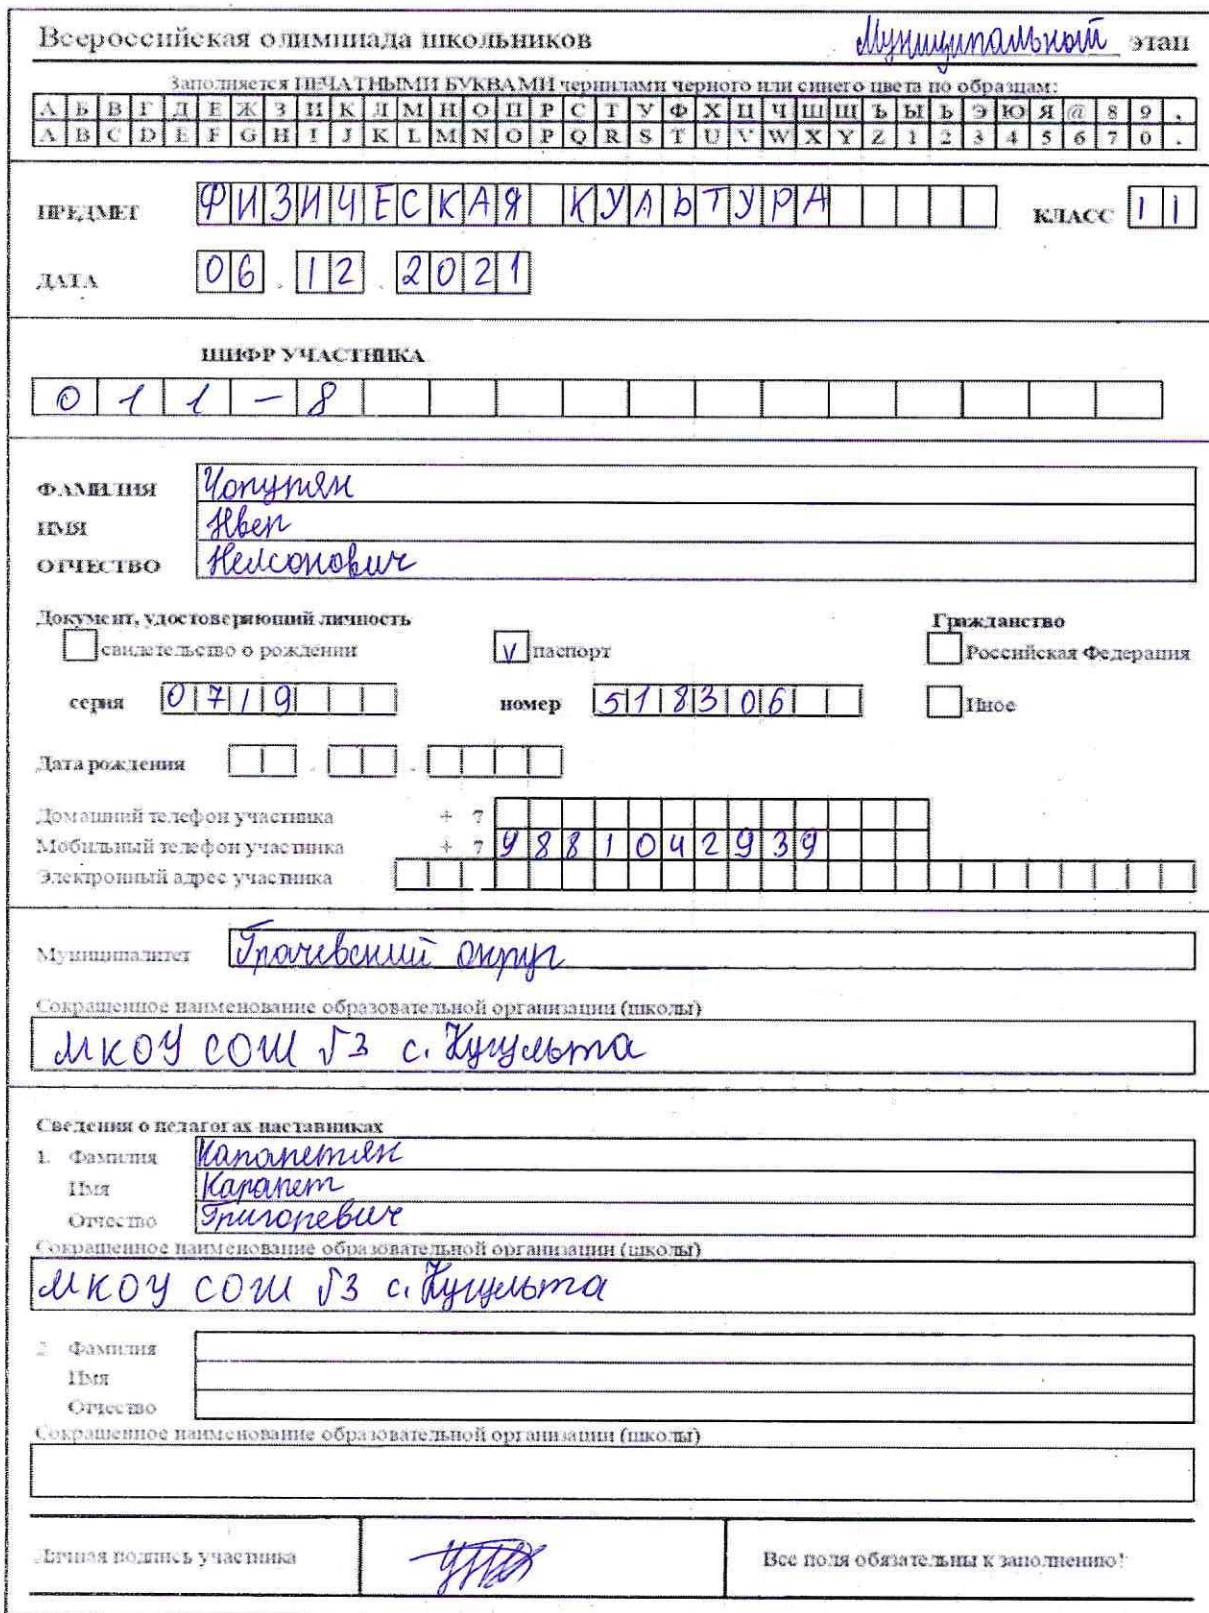 Всероссийская олимпиада школьников Муниципальной этап
Заполняется ПЕЧАТНЫМИ БУКВАМИ чернилами черного или синего цвета по образцам:
А Б В Г Д Е Ж З И К Л М Н О П Р С Т У Ф Х Ц Ч Ш Щ Ъ Ы Ь Э Ю Я @ 8 9 ,
A B C D E F G H I J K L M N O P Q R S T U V W X Y Z 1 2 3 4 5 6 7 0 .
ПРЕДМЕТ ФИЗИЧЕСКАЯ КУЛЬТУРА КЛАСС 11
ДАТА 06.12.2021
ШИФР УЧАСТНИКА
011-8
ФАМИЛИЯ Чопурян
ИМЯ Нвер
ОТЧЕСТВО Нелсонович
Документ, удостоверяющий личность Гражданство
свидетельство о рождении V паспорт Российская Федерация
серия 0719 номер 518306 Иное
Дата рождения . .
Домашний телефон участника + 7
Мобильный телефон участника + 7 9881042939
Электронный адрес участника
Муниципалитет Грачевский округ
Сокращенное наименование образовательной организации (школы)
МКОУ СОШ №3 с. Кугульта
Сведения о педагогах наставниках
1. Фамилия Карапетян
Имя Карапет
Отчество Григоревич
Сокращенное наименование образовательной организации (школы)
МКОУ СОШ №3 с. Кугульта
2. Фамилия
Имя
Отчество
Сокращенное наименование образовательной организации (школы)
Личная подпись участника Все поля обязательны к заполнению!